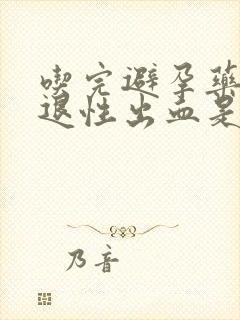 喫完避孕藥
退性出血是
乃音